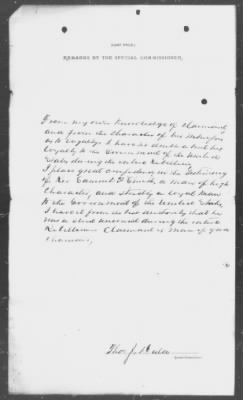 (LAST PAGE.)
REMARKS BY THE SPECIAL COMMISSIONER.
From my own knowledge of claimant
and from the character of his witnesses
as to loyalty I have no doubt but his
loyalty to the Government of the United
States during the entire Rebellion
I place great confidence in the testimony
of Rev Samuel D Smith a man of high
character, and strictly a loyal man
to the Government of the United States,
I have it from the best authority that he
was a Union man during the entire
Rebellion Claimant is man of good
character,
Thos J.